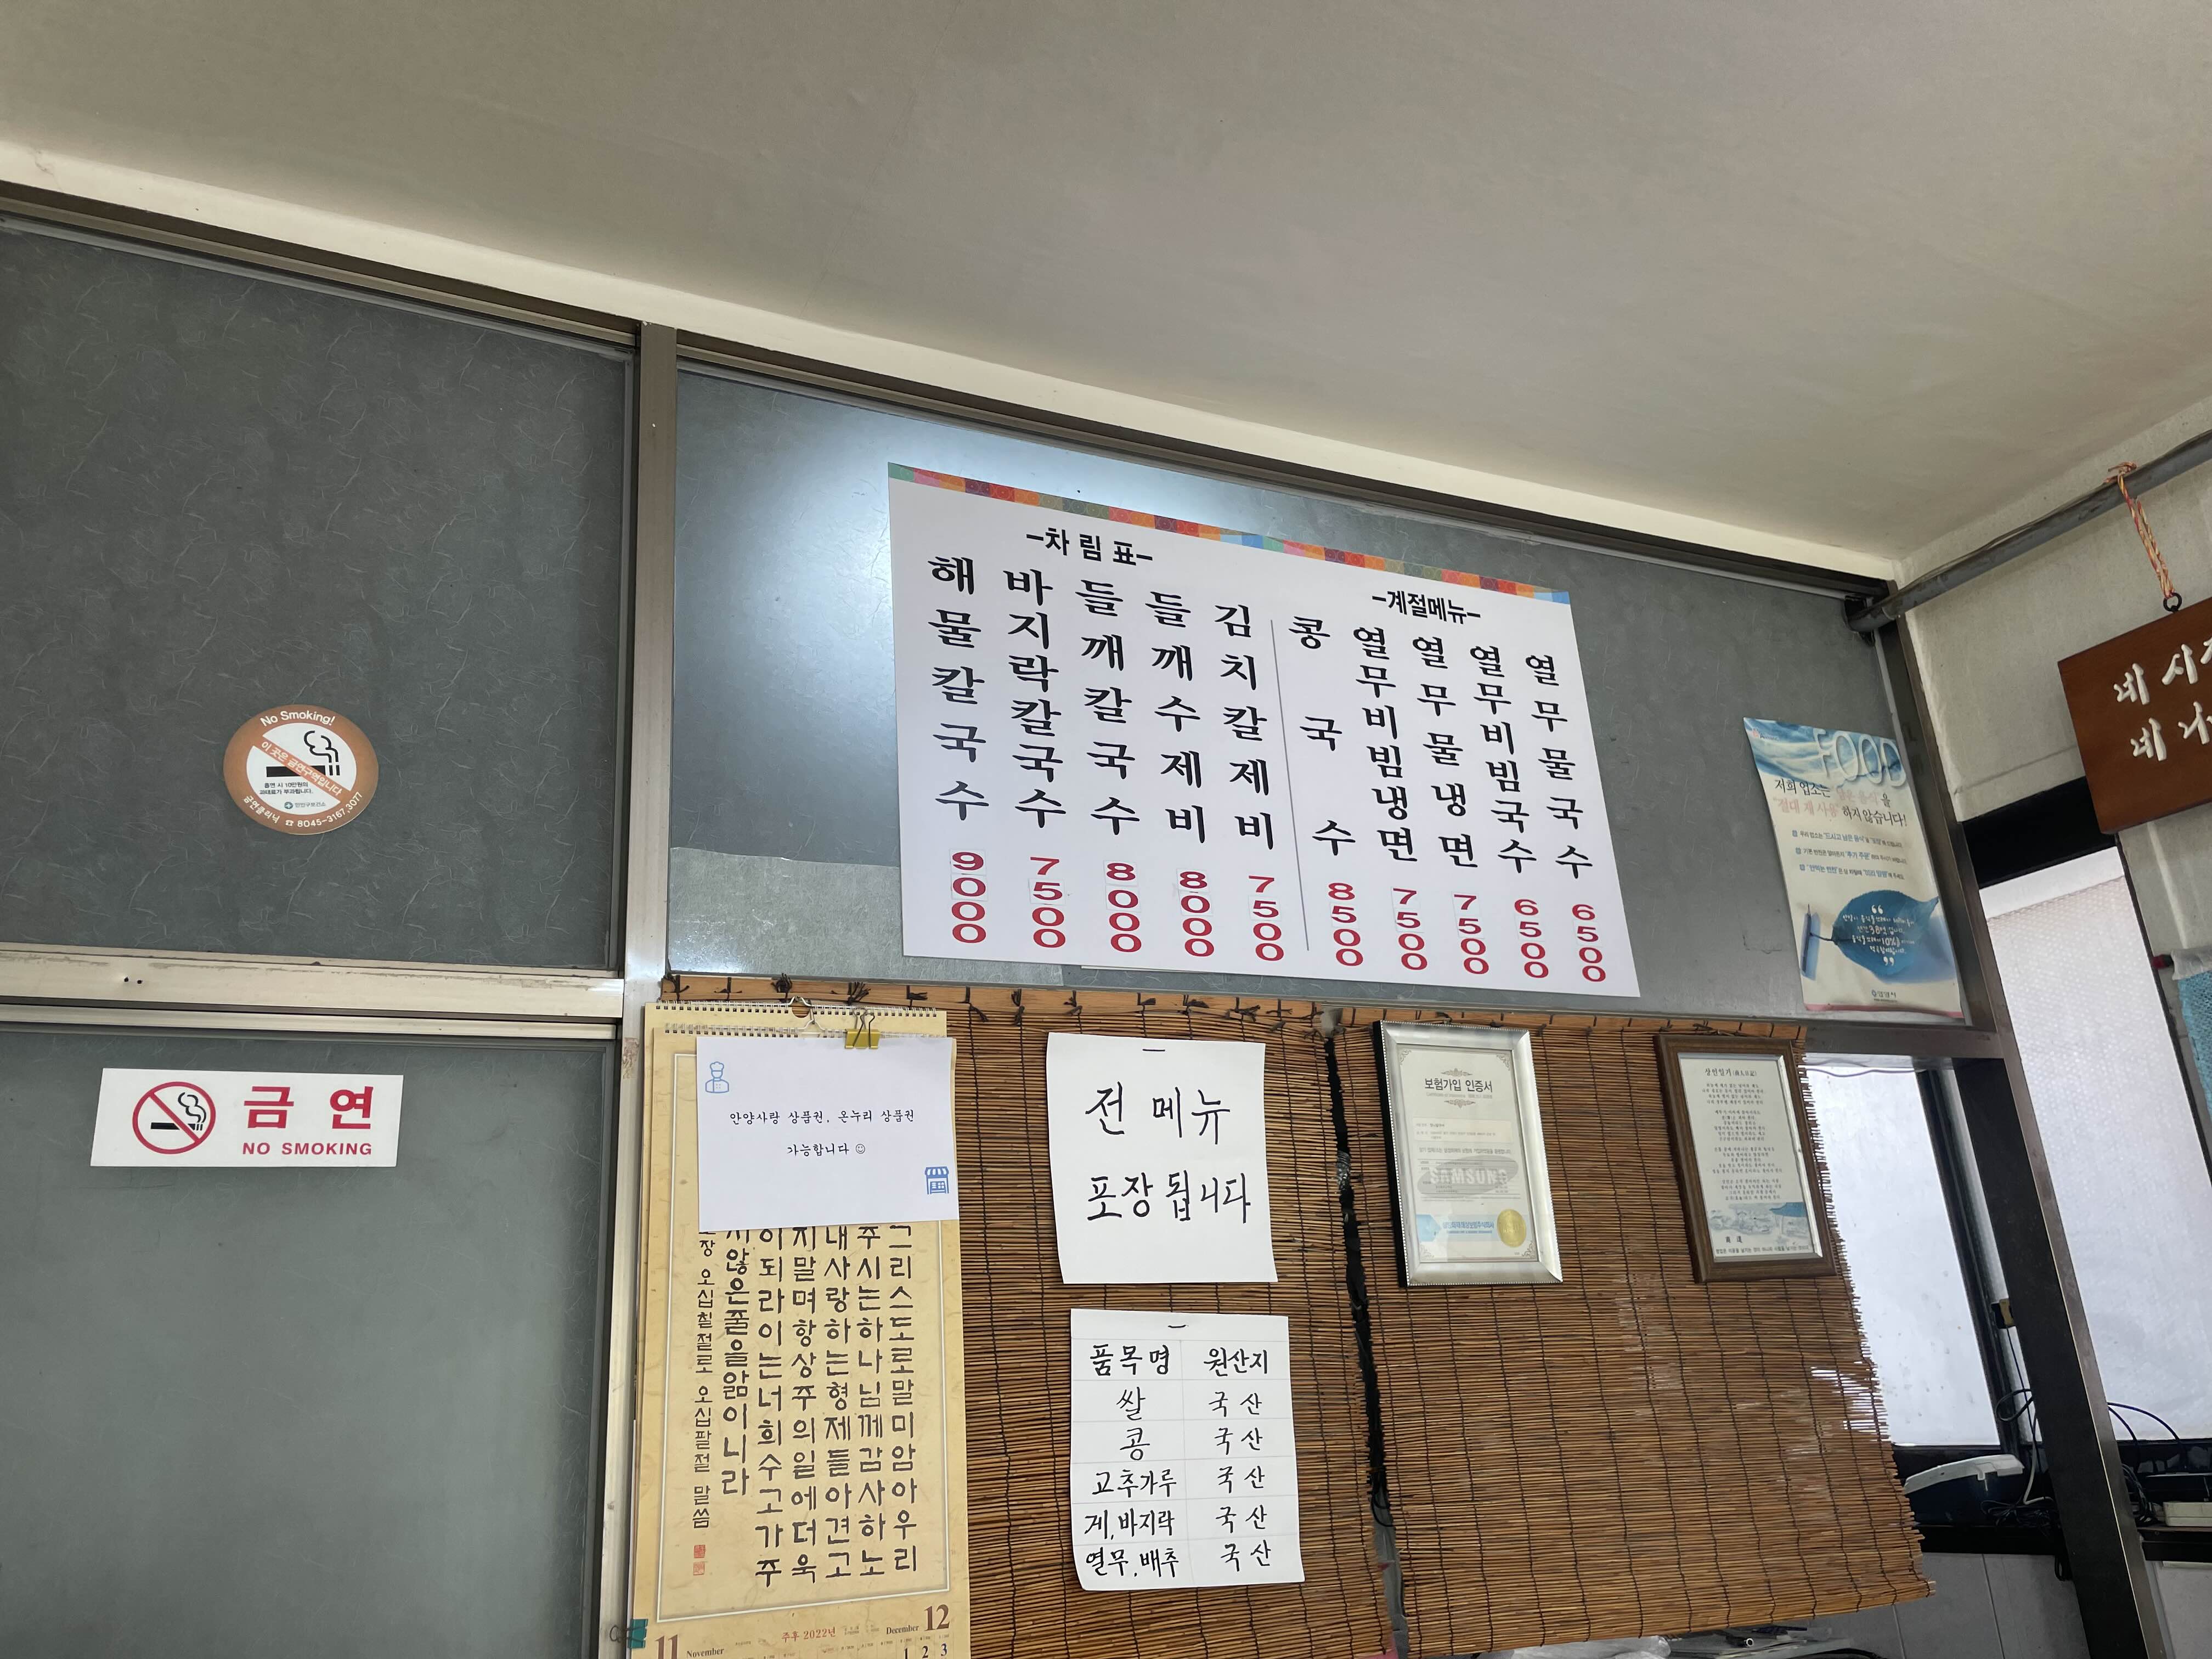 -차 림 표-
해물칼국수 9000
바지락칼국수 7500
들깨칼국수 8000
들깨수제비 8000
김치칼제비 7500
-계절메뉴-
콩국수 8500
열무비빔냉면 7500
열무물냉면 7500
열무비빔국수 6500
열무물국수 6500
No Smoking!
이 곳은 금연구역입니다
흡연 시 10만원의
과태료가 부과됩니다.
만안구보건소
금연클리닉 ☎ 8045-3167,3077
금 연
NO SMOKING
안양사랑 상품권, 온누리 상품권
가능합니다 ☺
그리스도로말미암아우리
주시는하나님께감사하노
내사랑하는형제들아견고
지말며항상주의일에더욱
이되라이는너희수고가주
지않은줄을앎이니라
장 오십칠절로 오십팔절 말씀
11 November
주후 2022년
December 12
1 2 3
전 메뉴
포장 됩니다
품목명 원산지
쌀 국산
콩 국산
고추가루 국산
게,바지락 국산
열무,배추 국산
보험가입 인증서
SAMSUNG
상인일기
FOOD
저희 업소는 을
"절대 재사용" 하지 않습니다!
네 시
네